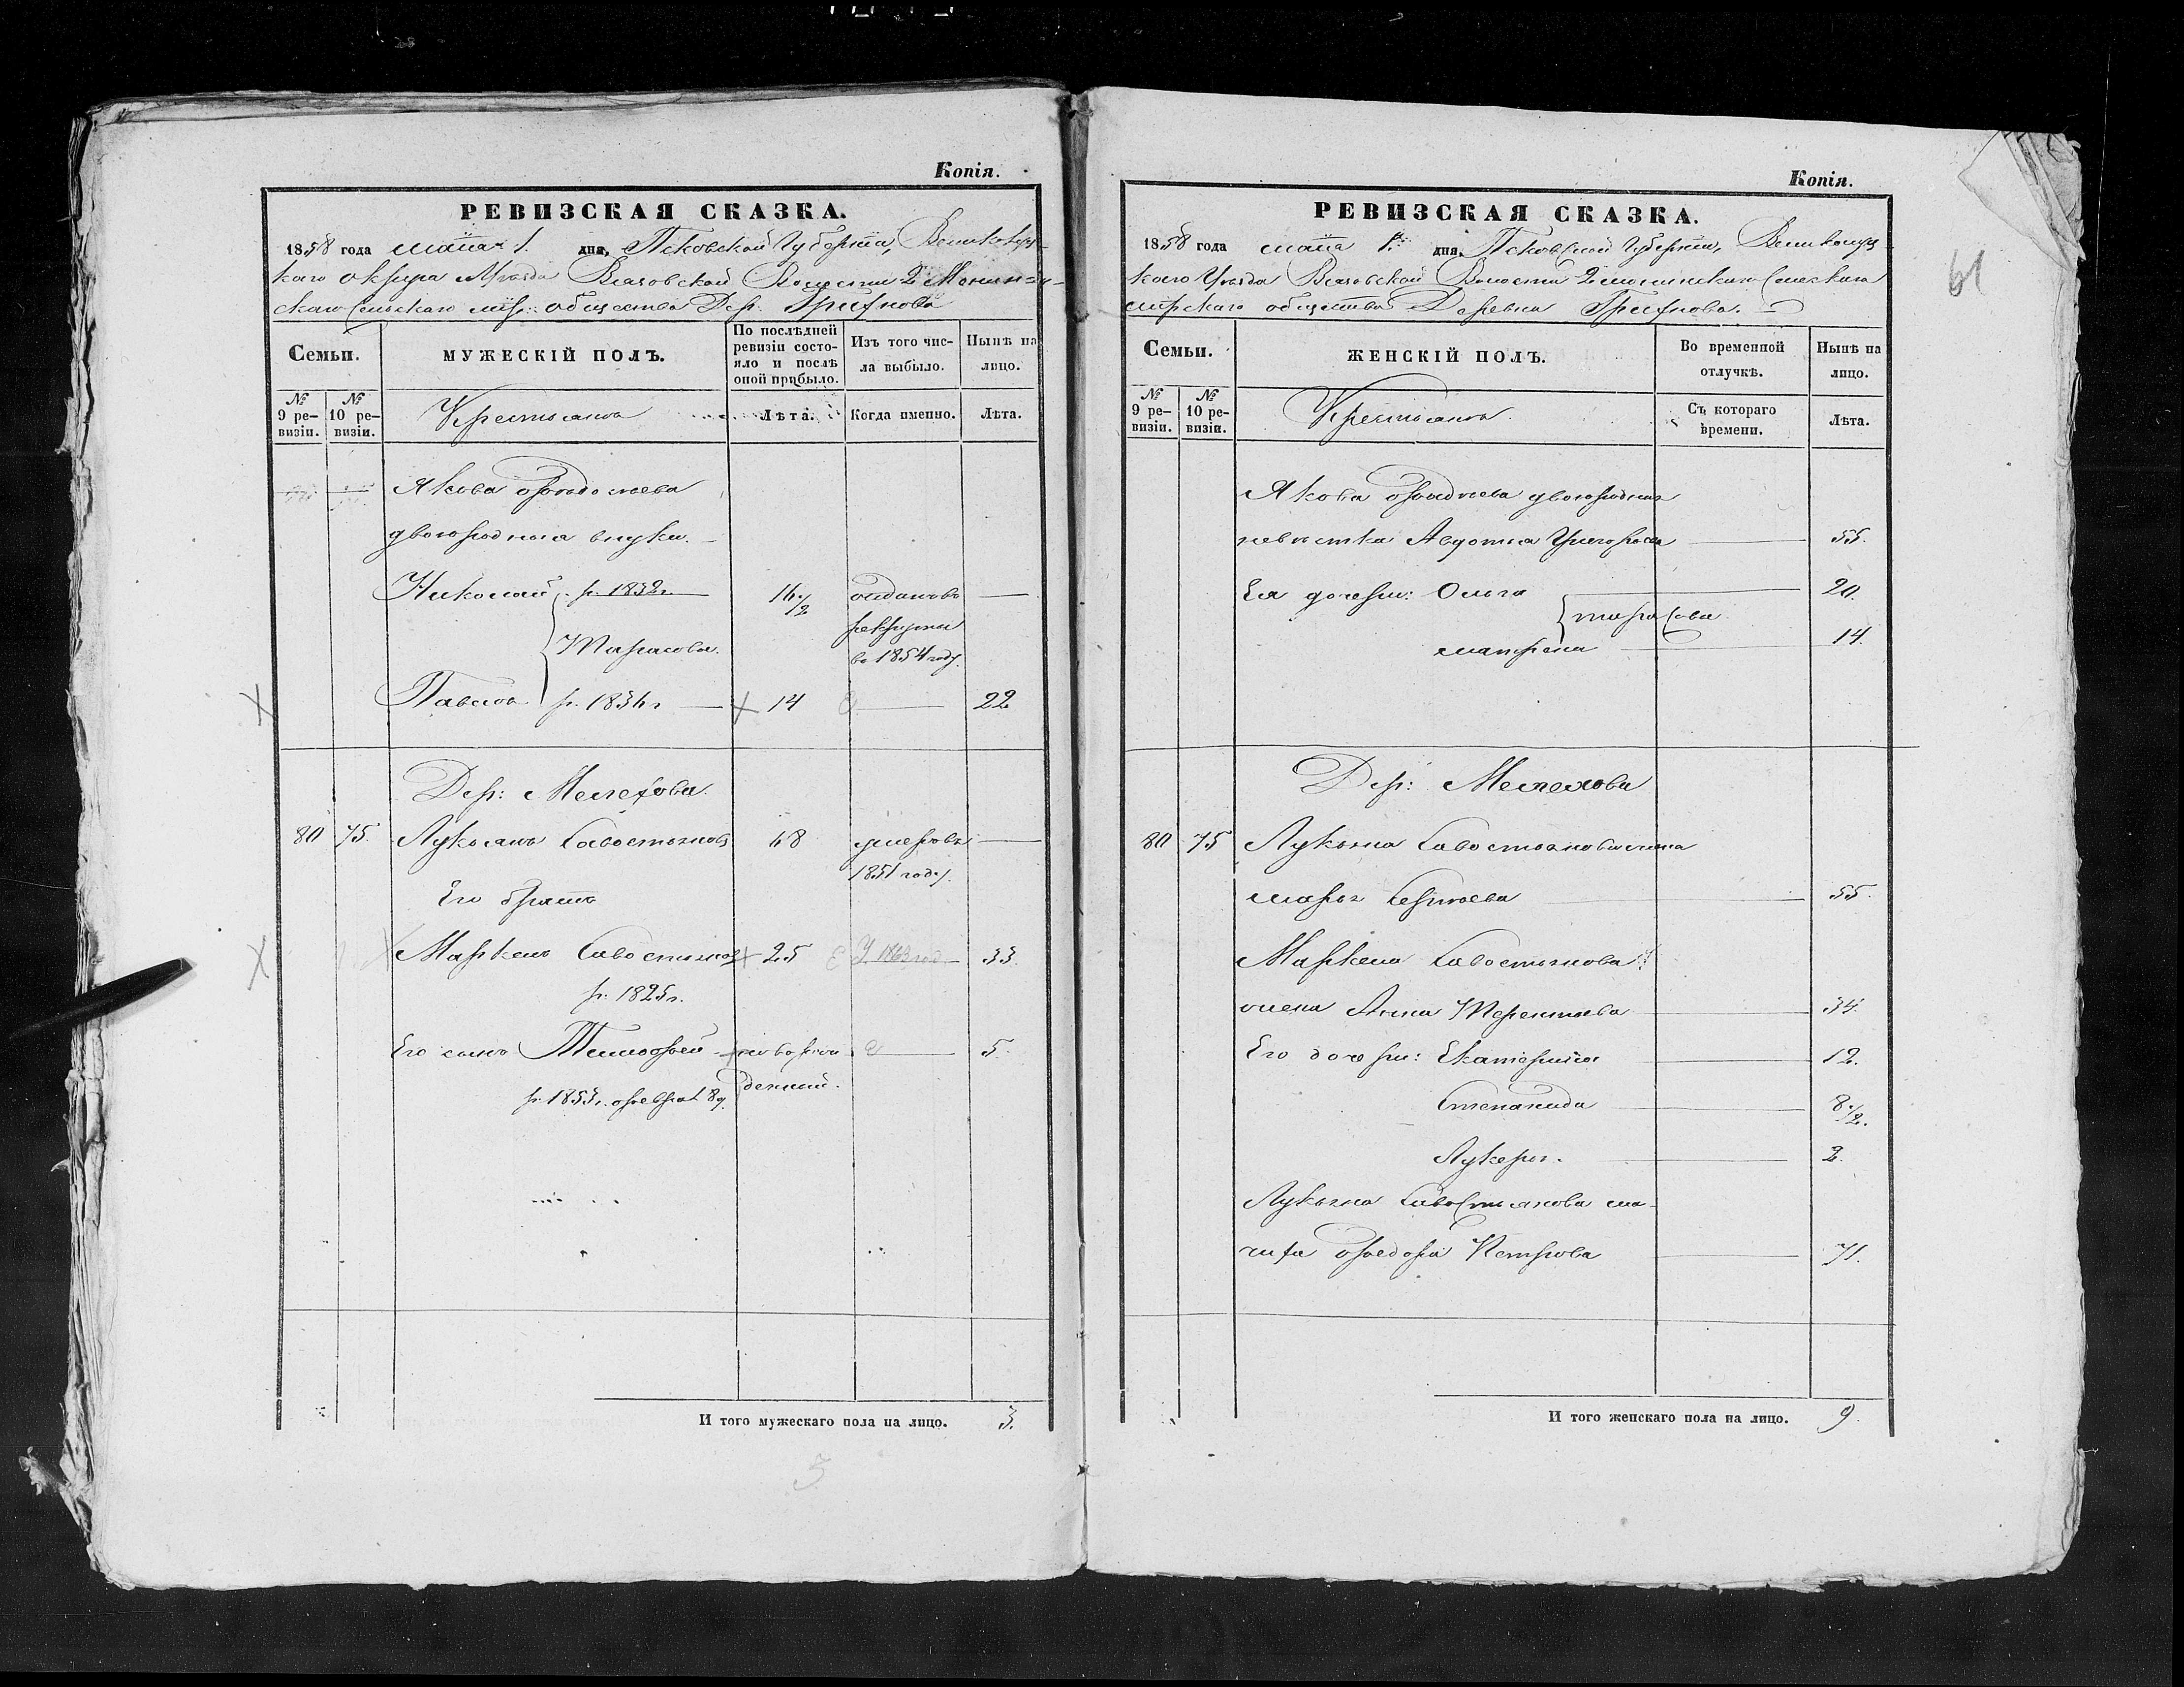 Копія.
РЕВИЗСКАЯ СКАЗКА.
1858 года маія 1. дня, Псковской Губерніи, Великолуц-
каго округа Уѣзда Волости 2 Монин-
скаго Сельскаго мір: общества Дер.
Семьи.
МУЖЕСКІЙ ПОЛЪ.
По послѣдней ревизіи состояло и послѣ оной прибыло.
Изъ того числа выбыло.
Нынѣ на лицо.
№ 9 ревизіи.
№ 10 ревизіи.
Крестьяне
Лѣта.
Когда именно.
Лѣта.
Якова
двоюродныя внуки.
Николай р. 1832 г. 16 1/2 отданъ въ
рекруты
Тарасовы. въ 1854 году.
Павелъ р. 1836 г 14 22
Дер: Мелехова.
80 75. Лукьянъ Савостьяновъ 48 умеръ въ
1851 году.
Его братъ
Маркелъ Савостьяновъ 25 У 1863 год 33.
р. 1825 г.
Его сынъ Тимофей новорож 5.
р. 1853 г. февраля 8 д. денный.
И того мужескаго пола на лицо. 3.
3
Копія.
61
РЕВИЗСКАЯ СКАЗКА.
1858 года маія 1. дня, Псковской Губерніи, Великолуц
каго Уѣзда Волости 2 Монинскаго Сельскаго
мірскаго общества Деревни
Семьи.
ЖЕНСКІЙ ПОЛЪ.
Во временной отлучкѣ.
Нынѣ на лицо.
№ 9 ревизіи.
№ 10 ревизіи.
Крестьяне.
Съ котораго времени.
Лѣта.
Якова двоюродная
невѣстка Авдотья Григорьева 55.
Ея дочери: Ольга 20.
Тарасовы.
Матрена 14.
Дер: Мелехова
80 75 Лукьяна Савостьянова жена
Марья Сергѣева 55.
Маркела Савостьянова
жена Анна Терентьева 34.
Его дочери: Екатерина 12.
Степанида 8 1/2.
Лукерья. 2.
Лукьяна Савостьянова ма-
чиха Федора Петрова 71.
И того женскаго пола на лицо. 9.